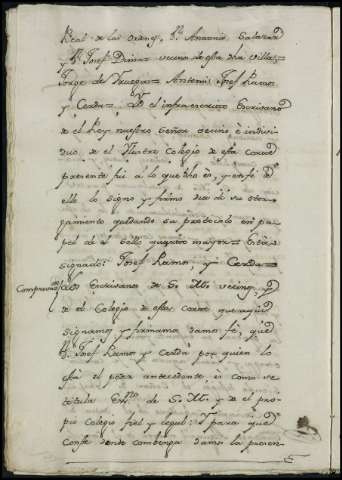 Real de las Ordenes, Dn. Antonio Salazar
y Dn. Josef Dunia vecino de esta dha villa =
Jorge de Truegas = Antemi: Josef Ramos
y Cerdá = Yo el infraescrito Escrivano
de el Rey nuestro Señor vecino è indivi
duo de el Ilustre Colegio de esta Corte
presente fui á lo que dho es, y en fé de
ello lo signo y firmo dia de su otor
gamiento quedando su protocolo en pa
pel de el Sello quarto mayor = Esta
signado: Josef Ramos, y Cerda =
Comprovacion Los Escrivanos de S. M. vecinos, y
de el Colegio de esta Corte que aqui
signamos y firmamos damos fé, que
Dn. Josef Ramos y Cerdá por quien lo
está el poder antecedente es como se
titula Essno. de S. M. y de el pro
pio Colegio fiel y legal: Y para que
conste donde combenga damos la presen